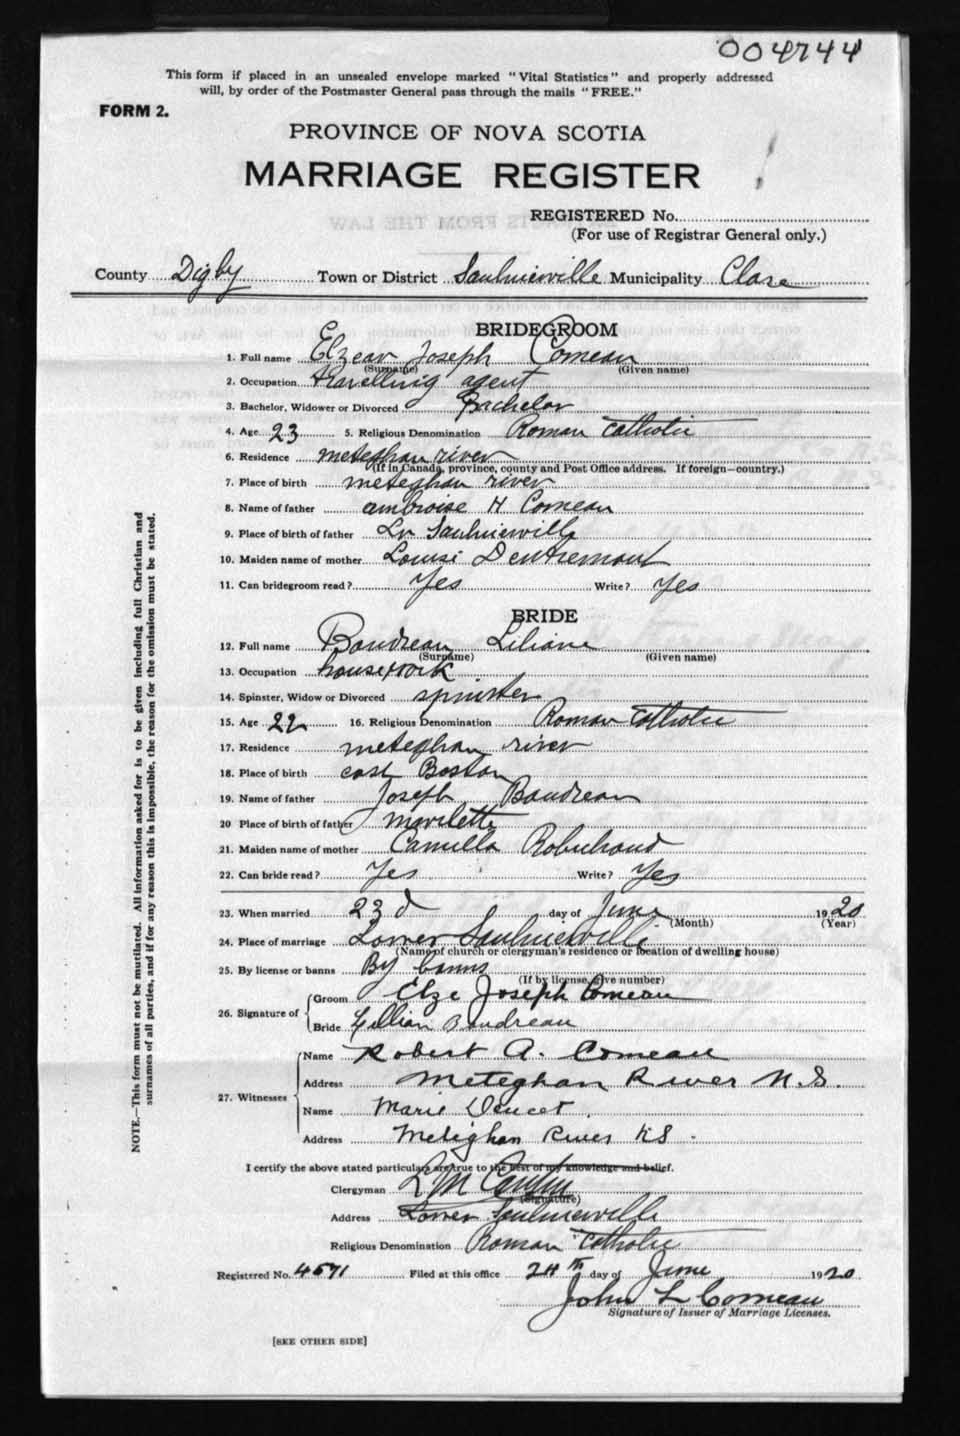 004744
This form if placed in an unsealed envelope marked "Vital Statistics" and properly addressed
will, by order of the Postmaster General pass through the mails "FREE."
FORM 2.
PROVINCE OF NOVA SCOTIA
MARRIAGE REGISTER
REGISTERED No.
(For use of Registrar General only.)
County Digby Town or District Saulnierville Municipality Clare
BRIDEGROOM
1. Full name Elzear Joseph Comeau
(Surname) (Given name)
2. Occupation travelling agent
3. Bachelor, Widower or Divorced Bachelor
4. Age 23 5. Religious Denomination Roman Catholic
6. Residence meteghan river
(If in Canada, province, county and Post Office address. If foreign—country.)
7. Place of birth meteghan river
8. Name of father ambroise H Comeau
9. Place of birth of father Lr Saulnierville
10. Maiden name of mother Louise Dentremont
11. Can bridegroom read? Yes Write? Yes
BRIDE
12. Full name Boudreau Liliane
(Surname) (Given name)
13. Occupation housework
14. Spinster, Widow or Divorced spinster
15. Age 22 16. Religious Denomination Roman Catholic
17. Residence meteghan river
18. Place of birth east Boston
19. Name of father Joseph Boudreau
20 Place of birth of father mavilette
21. Maiden name of mother Camilla Robichaud
22. Can bride read? Yes Write? Yes
23. When married 23d day of June 1920
(Month) (Year)
24. Place of marriage Lower Saulnierville
(Name of church or clergyman's residence or location of dwelling house)
25. By license or banns By banns
(If by license, give number)
26. Signature of Groom Elze Joseph Comeau
Bride Lillian Boudreau
27. Witnesses
Name Robert A. Comeau
Address Meteghan River N.S.
Name Marie Doucet.
Address Meteghan River NS.
I certify the above stated particulars are true to the best of my knowledge and belief.
Clergyman L M
(Signature)
Address Lower Saulnierville
Religious Denomination Roman Catholic
Registered No. 4571 Filed at this office 24th day of June 1920
John L Comeau
Signature of Issuer of Marriage Licenses.
[SEE OTHER SIDE]
NOTE.—This form must not be mutilated. All information asked for is to be given including full Christian and
surnames of all parties, and if for any reason this is impossible, the reason for the omission must be stated.